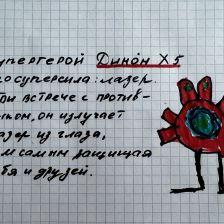 упергерой Динон X5
го суперсила: лазер.
ри встрече с против-
иком, он излучает
азер из глаза,
м самым защищая
бя и друзей.